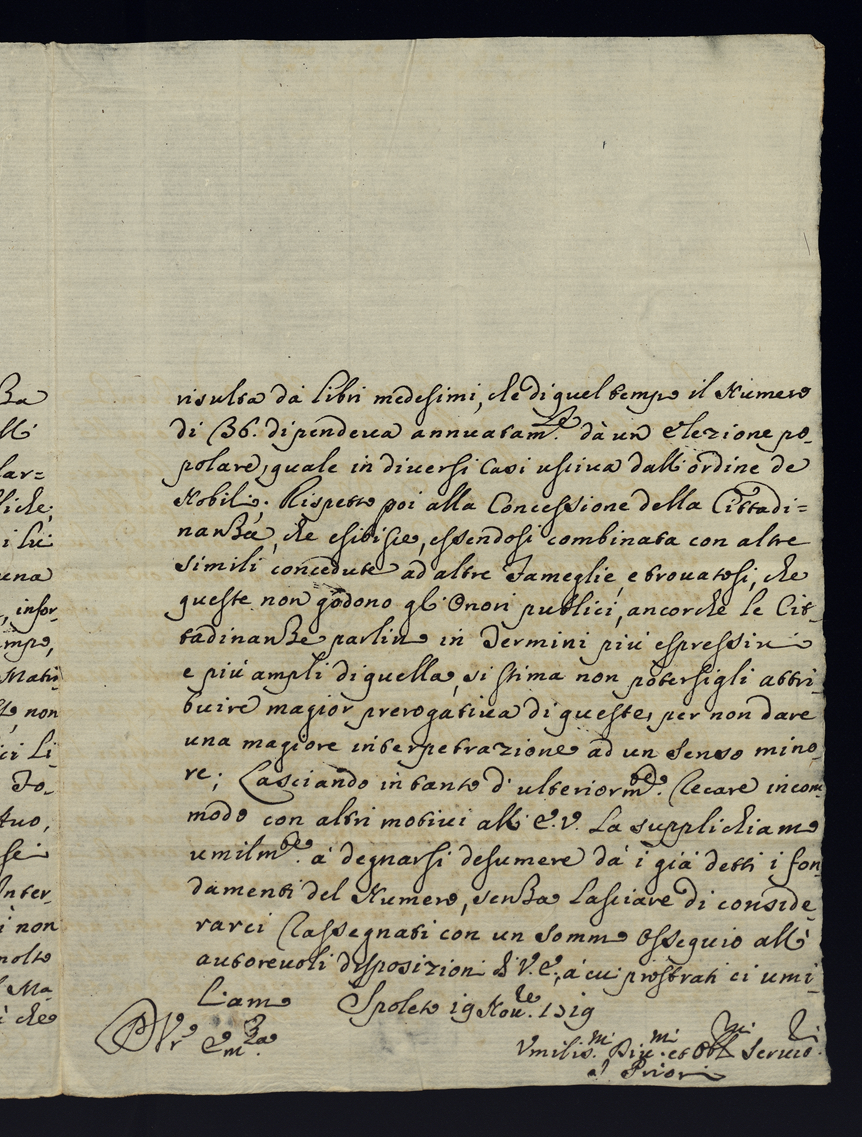 risulta dà libri medesimi, che di quel tempo il Numero
di 36. dipendeva annuatamte. dà un elezione po-
polare, quale in diversi casi usciva dall'ordine de
Nobili. Rispetto poi alla Concessione della Cittadi=
nanza, che esibisce, essendosi combinata con altre
simili concedute ad altre Fameglie, e trovatosi, che
queste non godono gl'Onori publici, ancorche le Cit-
tadinanze parlino in Termini più espressivi
e più ampli di quella, si stima non potersigli attri-
buire magior prerogativa di queste, per non dare
una magiore interpetrazione ad un senso mino-
re; Lasciando intanto d'ulteriormte. recare incom-
modo con altri motivi all'E.V. La supplichiamo
umilmte. à degnarsi desumere dà i già detti i fon-
damenti del Numero, senza lasciare di conside-
rarci rassegnati con un sommo osseguio all'
autorevoli disposizioni di V.E., à cui prostrati ci umi-
liamo Spoleto 19 Nove. 1719
Di Vr. Emza.
Umilismi. Divmi. et Obbmi Servitri.
I Priori
Za
all'
lar=
liche,
una
infor-
empo,
non
ci Li
Fo-
sei
Inter-
i non
molto
Ma-
che